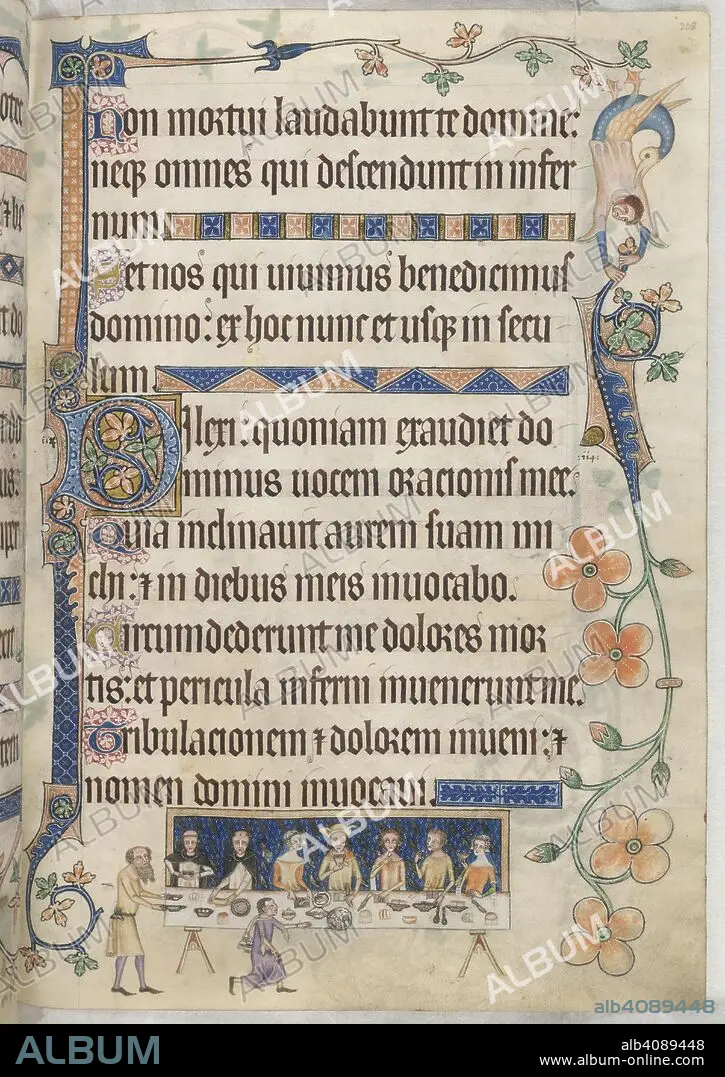 208
Non mortui laudabunt te domine:
neqꝫ omnes qui descendunt in infer
num.
Set nos qui uiuimus benedicimus
domino: ex hoc nunc et usqꝫ in secu
lum.
Dilexi: quoniam exaudiet do
minus uocem oracionis mee.
Quia inclinauit aurem suam mi
chi: ⁊ in diebus meis inuocabo.
Circumdederunt me dolores mor
tis: et pericula inferni inuenerunt me.
Tribulacionem ⁊ dolorem inueni: ⁊
nomen domini inuocaui.
ALBUM
alb4089448
ALBUM
alb4089448
www.album-online.com